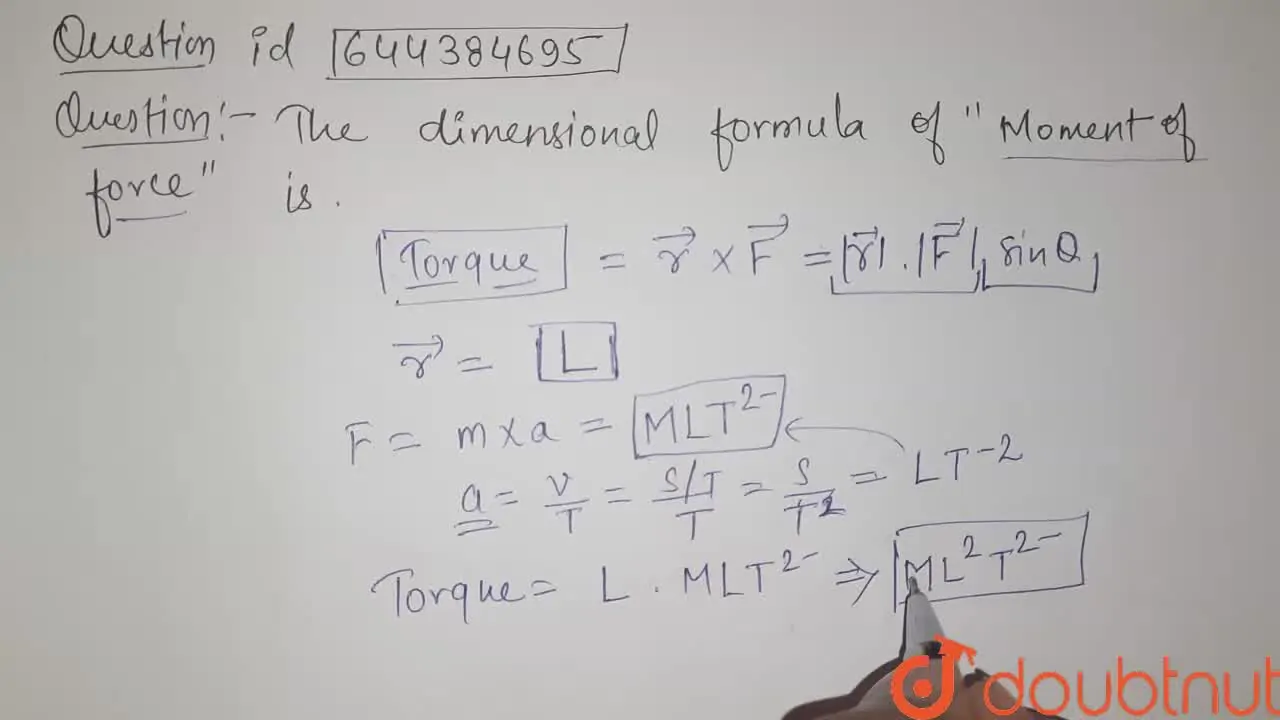 Question id 644384695
Question:- The dimensional formula of "Moment of
force" is.
Torque = r⃗ × F⃗ = |r⃗| . |F⃗|, sinθ
r⃗ = L
F = m×a = MLT²⁻
a = V/T = S/T/T = S/T² = LT⁻²
Torque = L . MLT²⁻ ⇒ ML²T²⁻
doubtnut